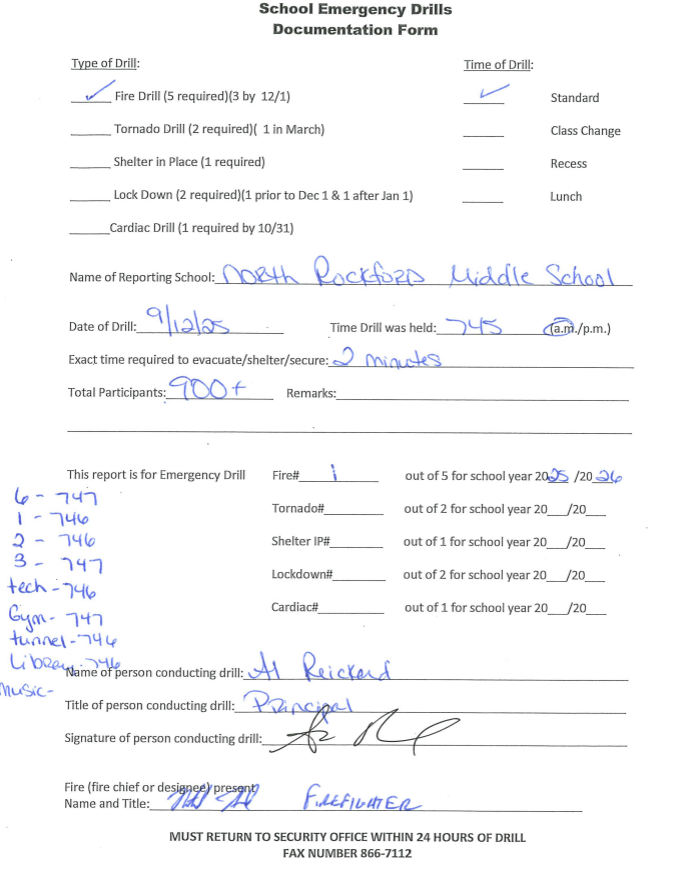 School Emergency Drills
Documentation Form
Type of Drill: Time of Drill:
✓ Fire Drill (5 required)(3 by 12/1) ✓ Standard
Tornado Drill (2 required)( 1 in March) Class Change
Shelter in Place (1 required) Recess
Lock Down (2 required)(1 prior to Dec 1 & 1 after Jan 1) Lunch
Cardiac Drill (1 required by 10/31)
Name of Reporting School: North Rockford Middle School
Date of Drill: 9/12/25 Time Drill was held: 745 (a.m./p.m.)
Exact time required to evacuate/shelter/secure: 2 minutes
Total Participants: 900+ Remarks:
This report is for Emergency Drill Fire# 1 out of 5 for school year 2025 /20 26
6 - 747
Tornado# out of 2 for school year 20__/20__
1 - 746
2 - 746 Shelter IP# out of 1 for school year 20__/20__
3 - 747
Lockdown# out of 2 for school year 20__/20__
tech - 746
Cardiac# out of 1 for school year 20__/20__
Gym - 747
tunnel - 746
Library - 746
Name of person conducting drill: Al Reickard
Music -
Title of person conducting drill: Principal
Signature of person conducting drill:
Fire (fire chief or designee) present
Name and Title: Firefighter
MUST RETURN TO SECURITY OFFICE WITHIN 24 HOURS OF DRILL
FAX NUMBER 866-7112